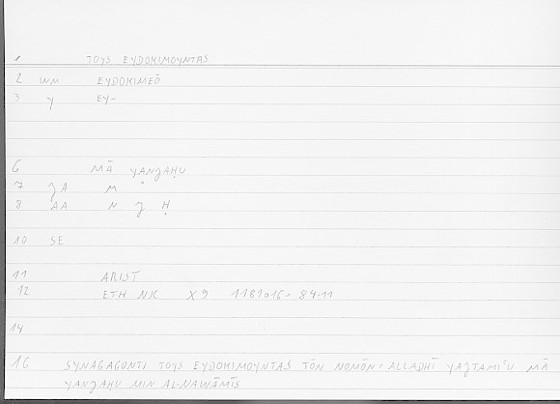 1 TOYS EYDOKIMOYNTAS
2 WM EYDOKIMEŌ
3 Y EY-
6 MĀ YANJAḤU
7 JA M °
8 AA N J Ḥ
10 SE
11 ARIST
12 ETH NIC X9 1181a16 = 84.11
14
16 SYNAGAGONTI TOYS EYDOKIMOYNTAS TŌN NOMŌN : ALLADHĪ YAJTAMIʿU MĀ
YANJAḤU MIN AL-NAWĀMĪS